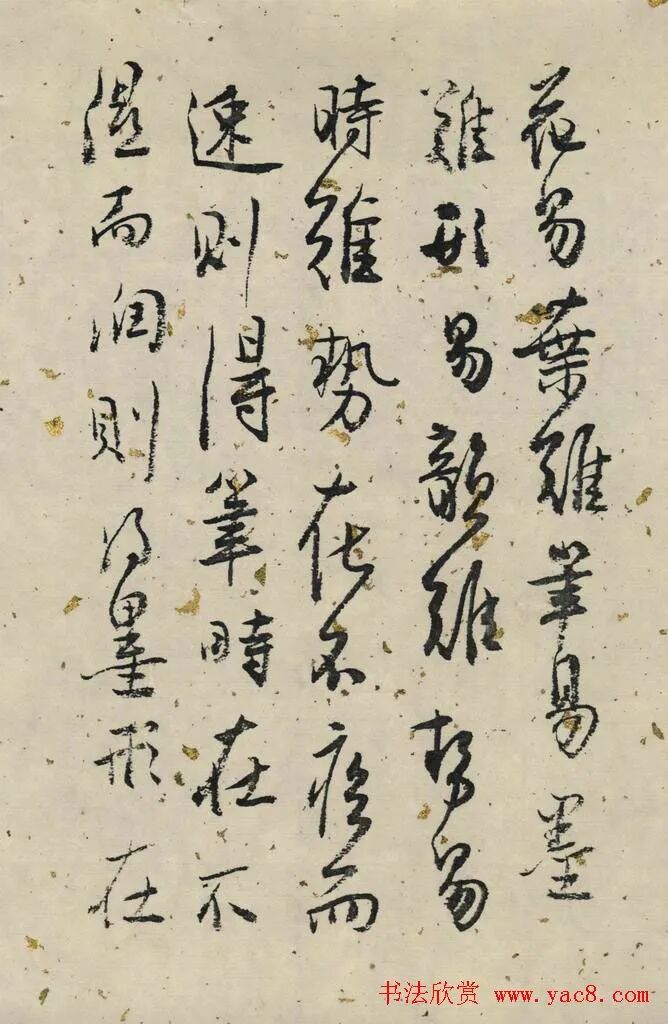 花易葉難筆易墨
難形易韻難勢易
時難勢在不疾而
速則得筆時在不
濕而潤則得墨形在
书法欣赏 www.yac8.com